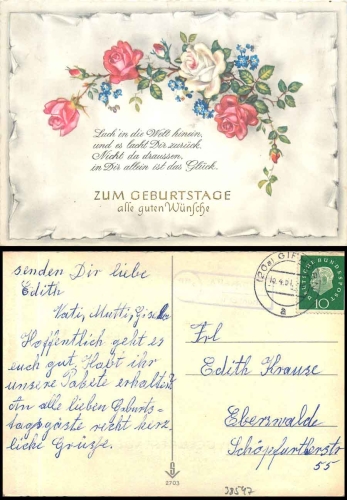 Lach' in die Welt hinein,
und es lacht Dir zurück.
Nicht da draussen,
in Dir allein ist das Glück.
ZUM GEBURTSTAGE
alle guten Wünsche
senden Dir liebe
Edith
Vati, Mutti, Gisela
Hoffentlich geht es
euch gut. Habt ihr
unsere Pakete erhalten?
An alle lieben Geburts-
tagsgäste recht herz-
liche Grüsse.
(20a) GIF
a
DEUTSCHE BUNDESPOST
10
Frl
Edith Krause
Eberswalde
Schöpfurtherstr
55
2703